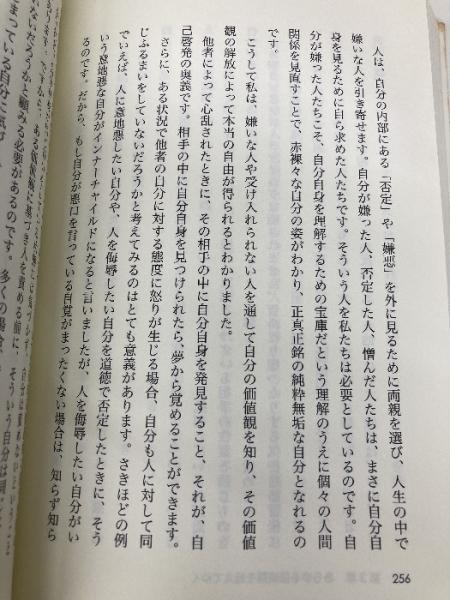 人は、自分の内部にある「否定」や「嫌悪」を外に見るために両親を選び、人生の中で
嫌いな人を引き寄せます。自分が嫌った人、否定した人、憎んだ人たちは、まさに自分自
身を見るために自ら求めた人たちです。そういう人を私たちは必要としているのです。自
分が嫌った人たちこそ、自分自身を理解するための宝庫だという理解のうえに個々の人間
関係を見直すことで、赤裸々な自分の姿がわかり、正真正銘の純粋無垢な自分となれるの
です。
こうして私は、嫌いな人や受け入れられない人を通して自分の価値観を知り、その価値
観の解放によって本当の自由が得られるとわかりました。
他者によって心乱されたときに、その相手の中に自分自身を発見すること、それが、自
己啓発の奥義です。相手の中に自分自身を見つけられたら、夢から覚めることができます。
さらに、ある状況で他者の自分に対する態度に怒りが生じる場合、自分も人に対して同
じふるまいをしていないだろうかと考えてみるのはとても意義があります。さきほどの例
でいえば、人に意地悪したい自分や、人を侮辱したい自分を道徳で否定したときに、そう
いう意地悪な自分がインナーチャイルドになると言いましたが、人を侮辱したい自分がい
るのです。だから、もし自分が悪口を言っている自覚がまったくない場合は、知らず知ら
256
ないだろうかと顧みる必要があるのです。多くの場合、
まっている自分に気づ